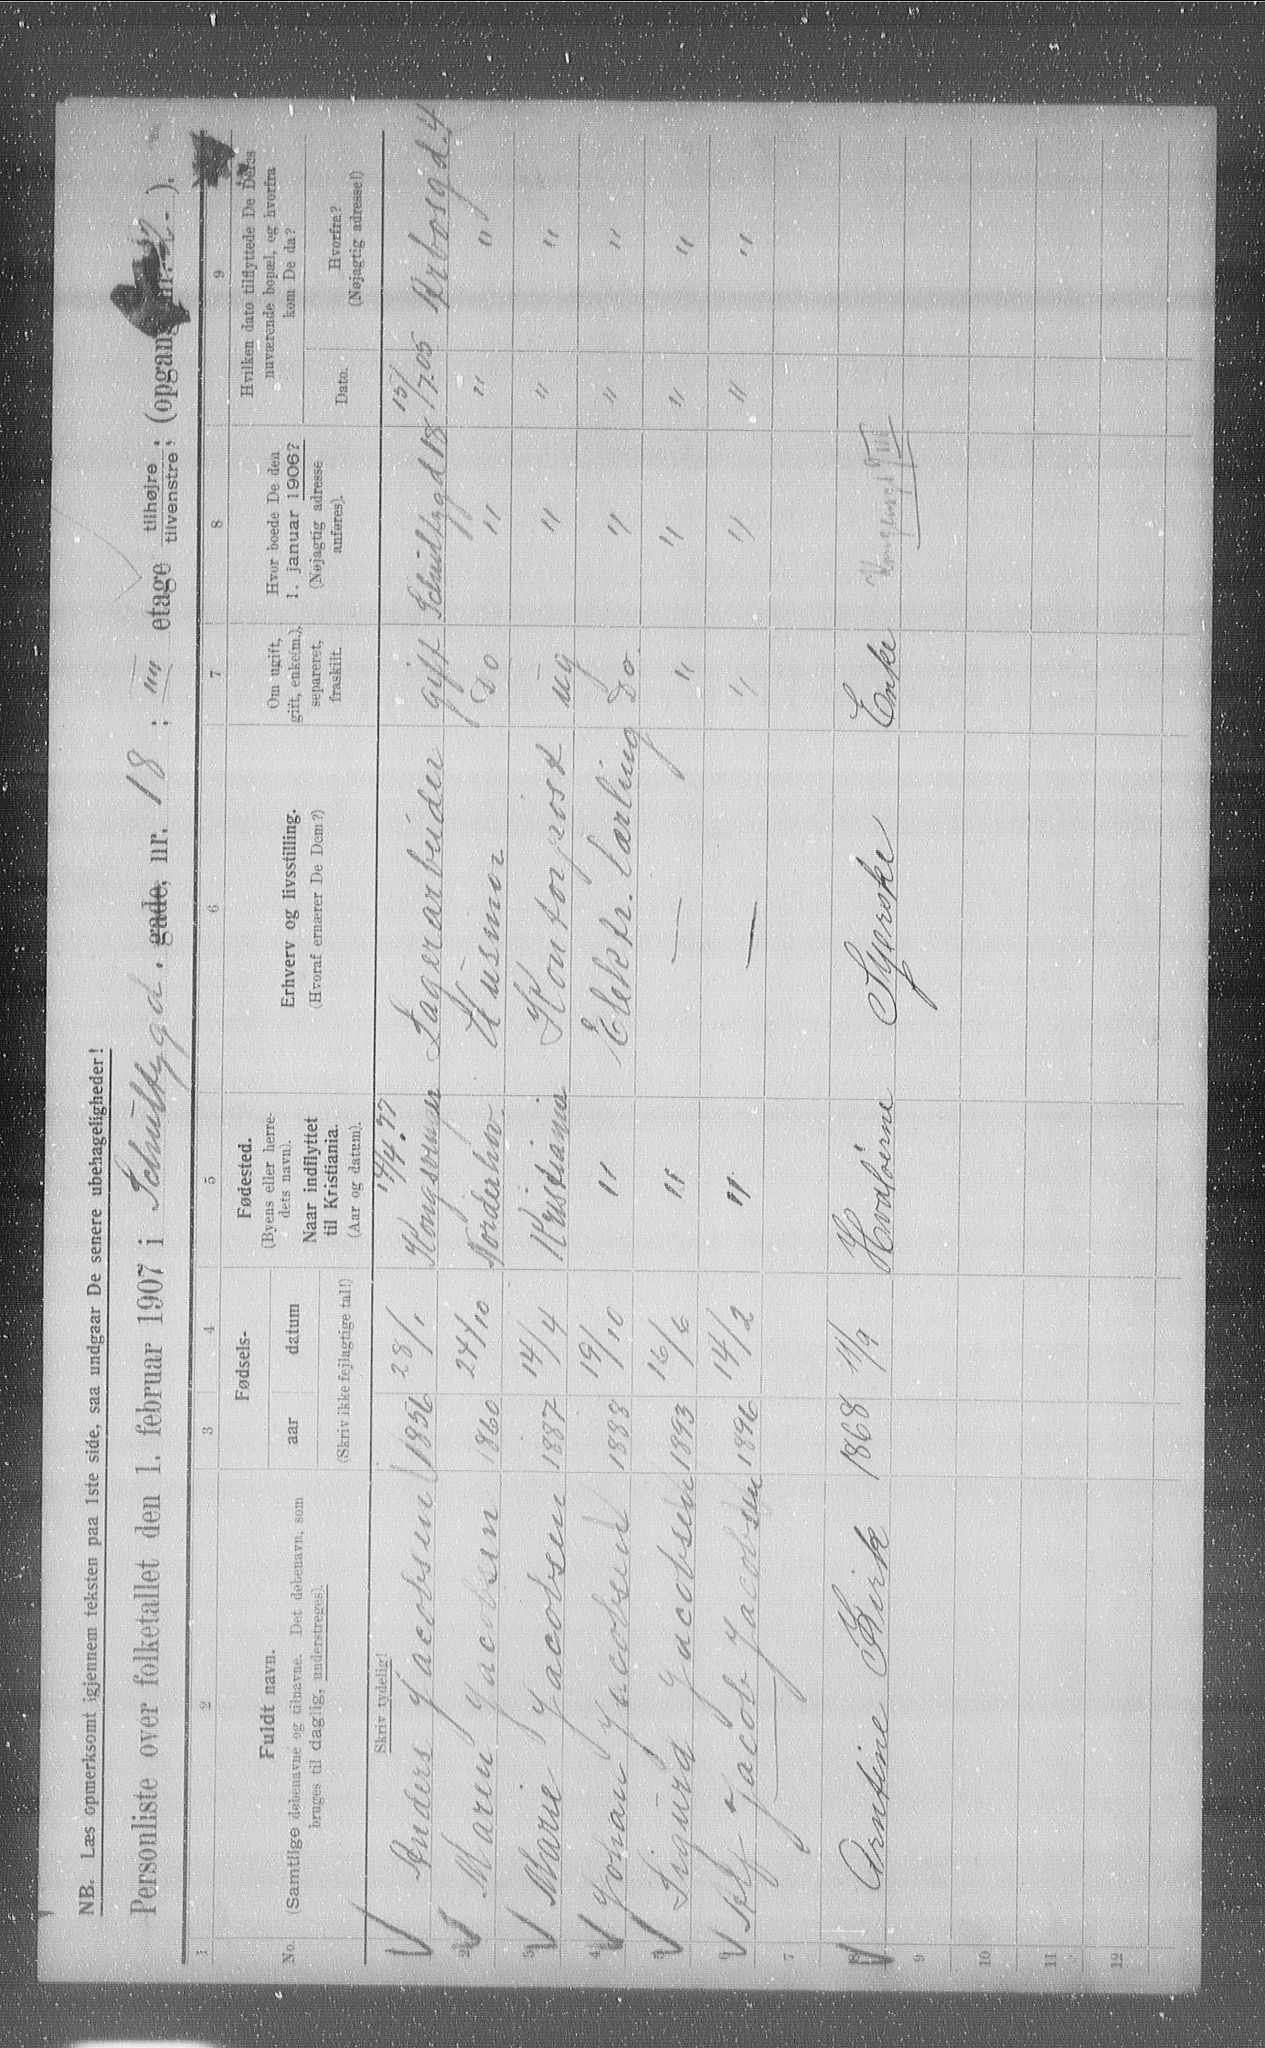 NB. Læs opmerksomt igjennem teksten paa 1ste side, saa undgaar De senere ubehageligheder!
Personliste over folketallet den 1. februar 1907 i Schultzgd. gade, nr. 18 ; III etage tilhøjre, tilvenstre; (opgang nr. 2 - ).
1 2 3 4 5 6 7 8 9
No.
Fuldt navn.
(Samtlige døbenavne og tilnavne. Det døbenavn, som
bruges til daglig, understreges).
Fødsels-
aar datum
(Skriv ikke fejlagtige tal!)
Fødested.
(Byens eller herre-
dets navn).
Naar indflyttet
til Kristiania.
(Aar og datum).
Erhverv og livsstilling.
(Hvoraf ernærer De Dem?)
Om ugift,
gift, enke(m.),
separeret,
fraskilt.
Hvor boede De den
1. januar 1906?
(Nøjagtig adresse
anføres).
Hvilken dato tilflyttede De Deres
nuværende bopæl, og hvorfra
kom De da?
Dato.
Hvorfra?
(Nøjagtig adresse!)
Skriv tydelig!
Anders Jacobsen 1856 28/1 Kongsvinger Lagerarbeider gift Schultzgd 18 15/7.05 Arbosgd. 4
2 Maren Jacobsen 1860 24/10 Norderhov. Husmor Do " " "
3 Marie Jacobsen 1887 14/4 Kristiania Kontorpost ug " " "
4 Johan Jacobsen 1888 19/10 " Elektr. Lærling Do. " " "
5 Sigurd Jacobsen 1893 16/6 " — " " " "
6 Alf Jacob Jacobsen 1896 14/2 " — " " " "
7
8 Arntine Kirk 1868 11/9 Hvaløerne Syerske Enke
9
10
11
12